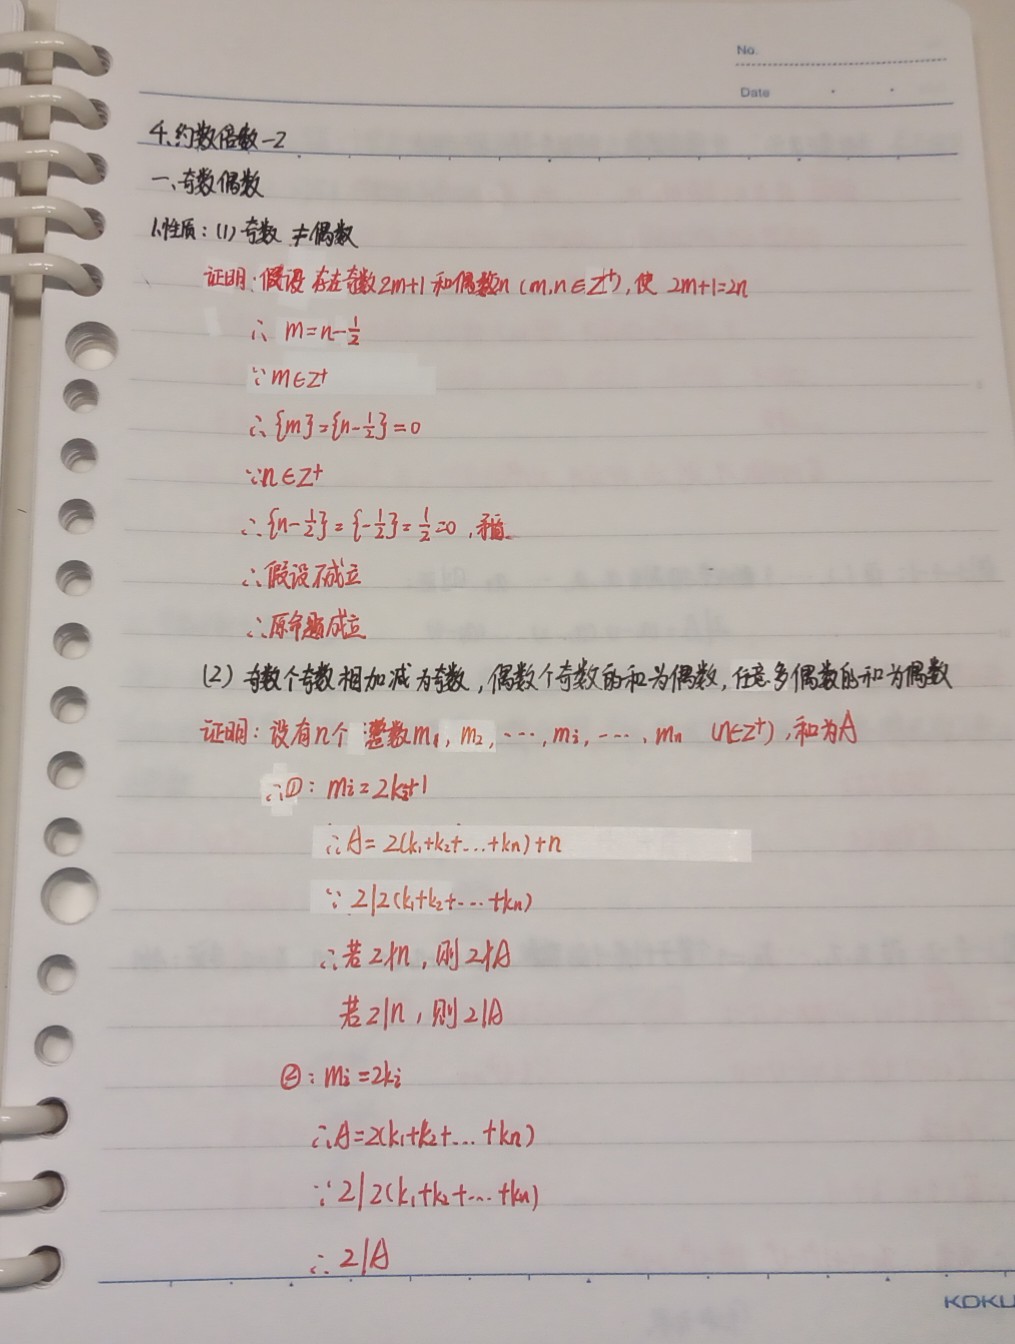 No.
Date
4、约数倍数-2
一、奇数偶数
1.性质：(1) 奇数 ≠偶数
证明：假设 存在奇数2m+1 和偶数2n (m,n∈Z⁺), 使 2m+1=2n
∴ m=n-1/2
∵m∈Z⁺
∴{m}={n-1/2}=0
∵n∈Z⁺
∴{n-1/2}={-1/2}=1/2=0 ,矛盾
∴假设不成立
∴原命题成立
(2) 奇数个奇数相加减为奇数, 偶数个奇数的和为偶数, 任意多偶数的和为偶数
证明：设有n个 整数m₁, m₂, ..., mᵢ, ..., mₙ (n∈Z⁺), 和为A
∴①: mᵢ=2kᵢ+1
∴A=2(k₁+k₂+...+kₙ)+n
∵ 2|2(k₁+k₂+...+kₙ)
∴若2∤n, 则2∤A
若2|n, 则2|A
②: mᵢ=2kᵢ
∴A=2(k₁+k₂+...+kₙ)
∵2|2(k₁+k₂+...+kₙ)
∴2|A
KOKU